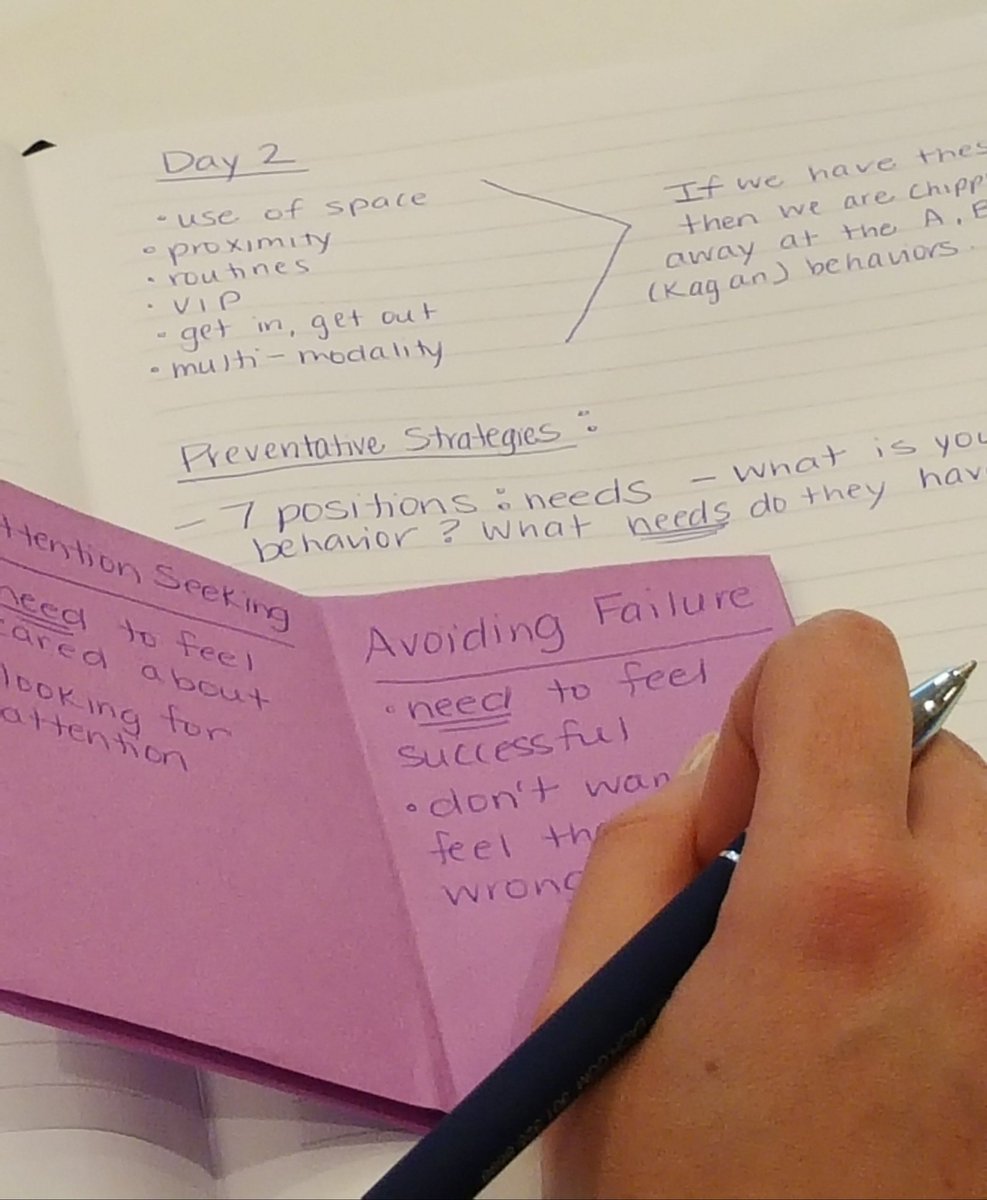 Day 2
• use of space
• proximity
• routines
• VIP
• get in, get out
• multi-modality
If we have
then we are
away at the A, B
(Kagan) behaviors.
Preventative Strategies:
- 7 positions: needs - what is
behavior? What needs do they
Seeking
need to feel
about
looking for
attention
Avoiding Failure
• need to feel
successful
• don't
feel